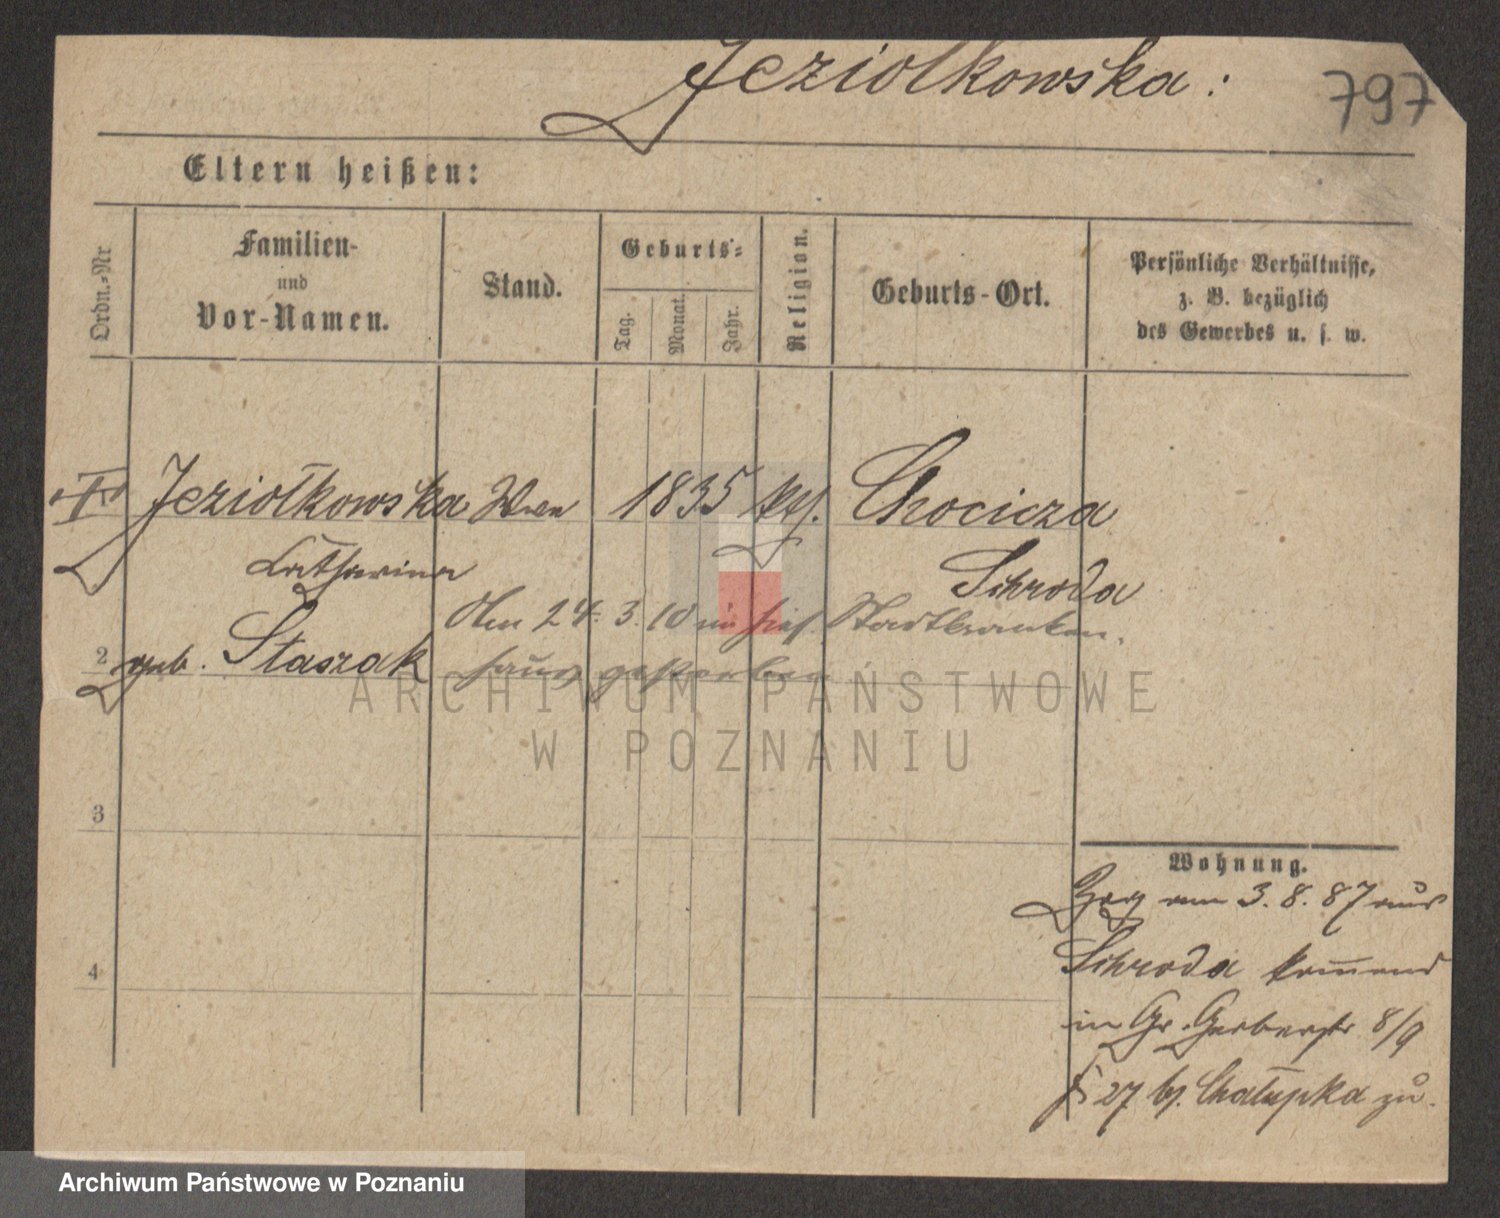 Jeziołkowska:
797
Eltern heißen:
Ordn.-Nr
Familien-
und
Vor-Namen.
Stand.
Geburts-
Tag.
Monat.
Jahr.
Religion.
Geburts-Ort.
Persönliche Verhältnisse,
z. B. bezüglich
des Gewerbes u. s. w.
Jeziołkowska 1835 kth. Chocicza
Catharina Schroda
Am 24. 3. 10 im hies. Stadtkranken-
2 geb. Staszak haus gestorben
3
4
Wohnung.
Zog am 3. 8. 87 aus
Schroda kommend
in Gr. Gerberstr 8/9
27 b/. Chałupka zu.
ARCHIWUM PAŃSTWOWE
W POZNANIU
Archiwum Państwowe w Poznaniu